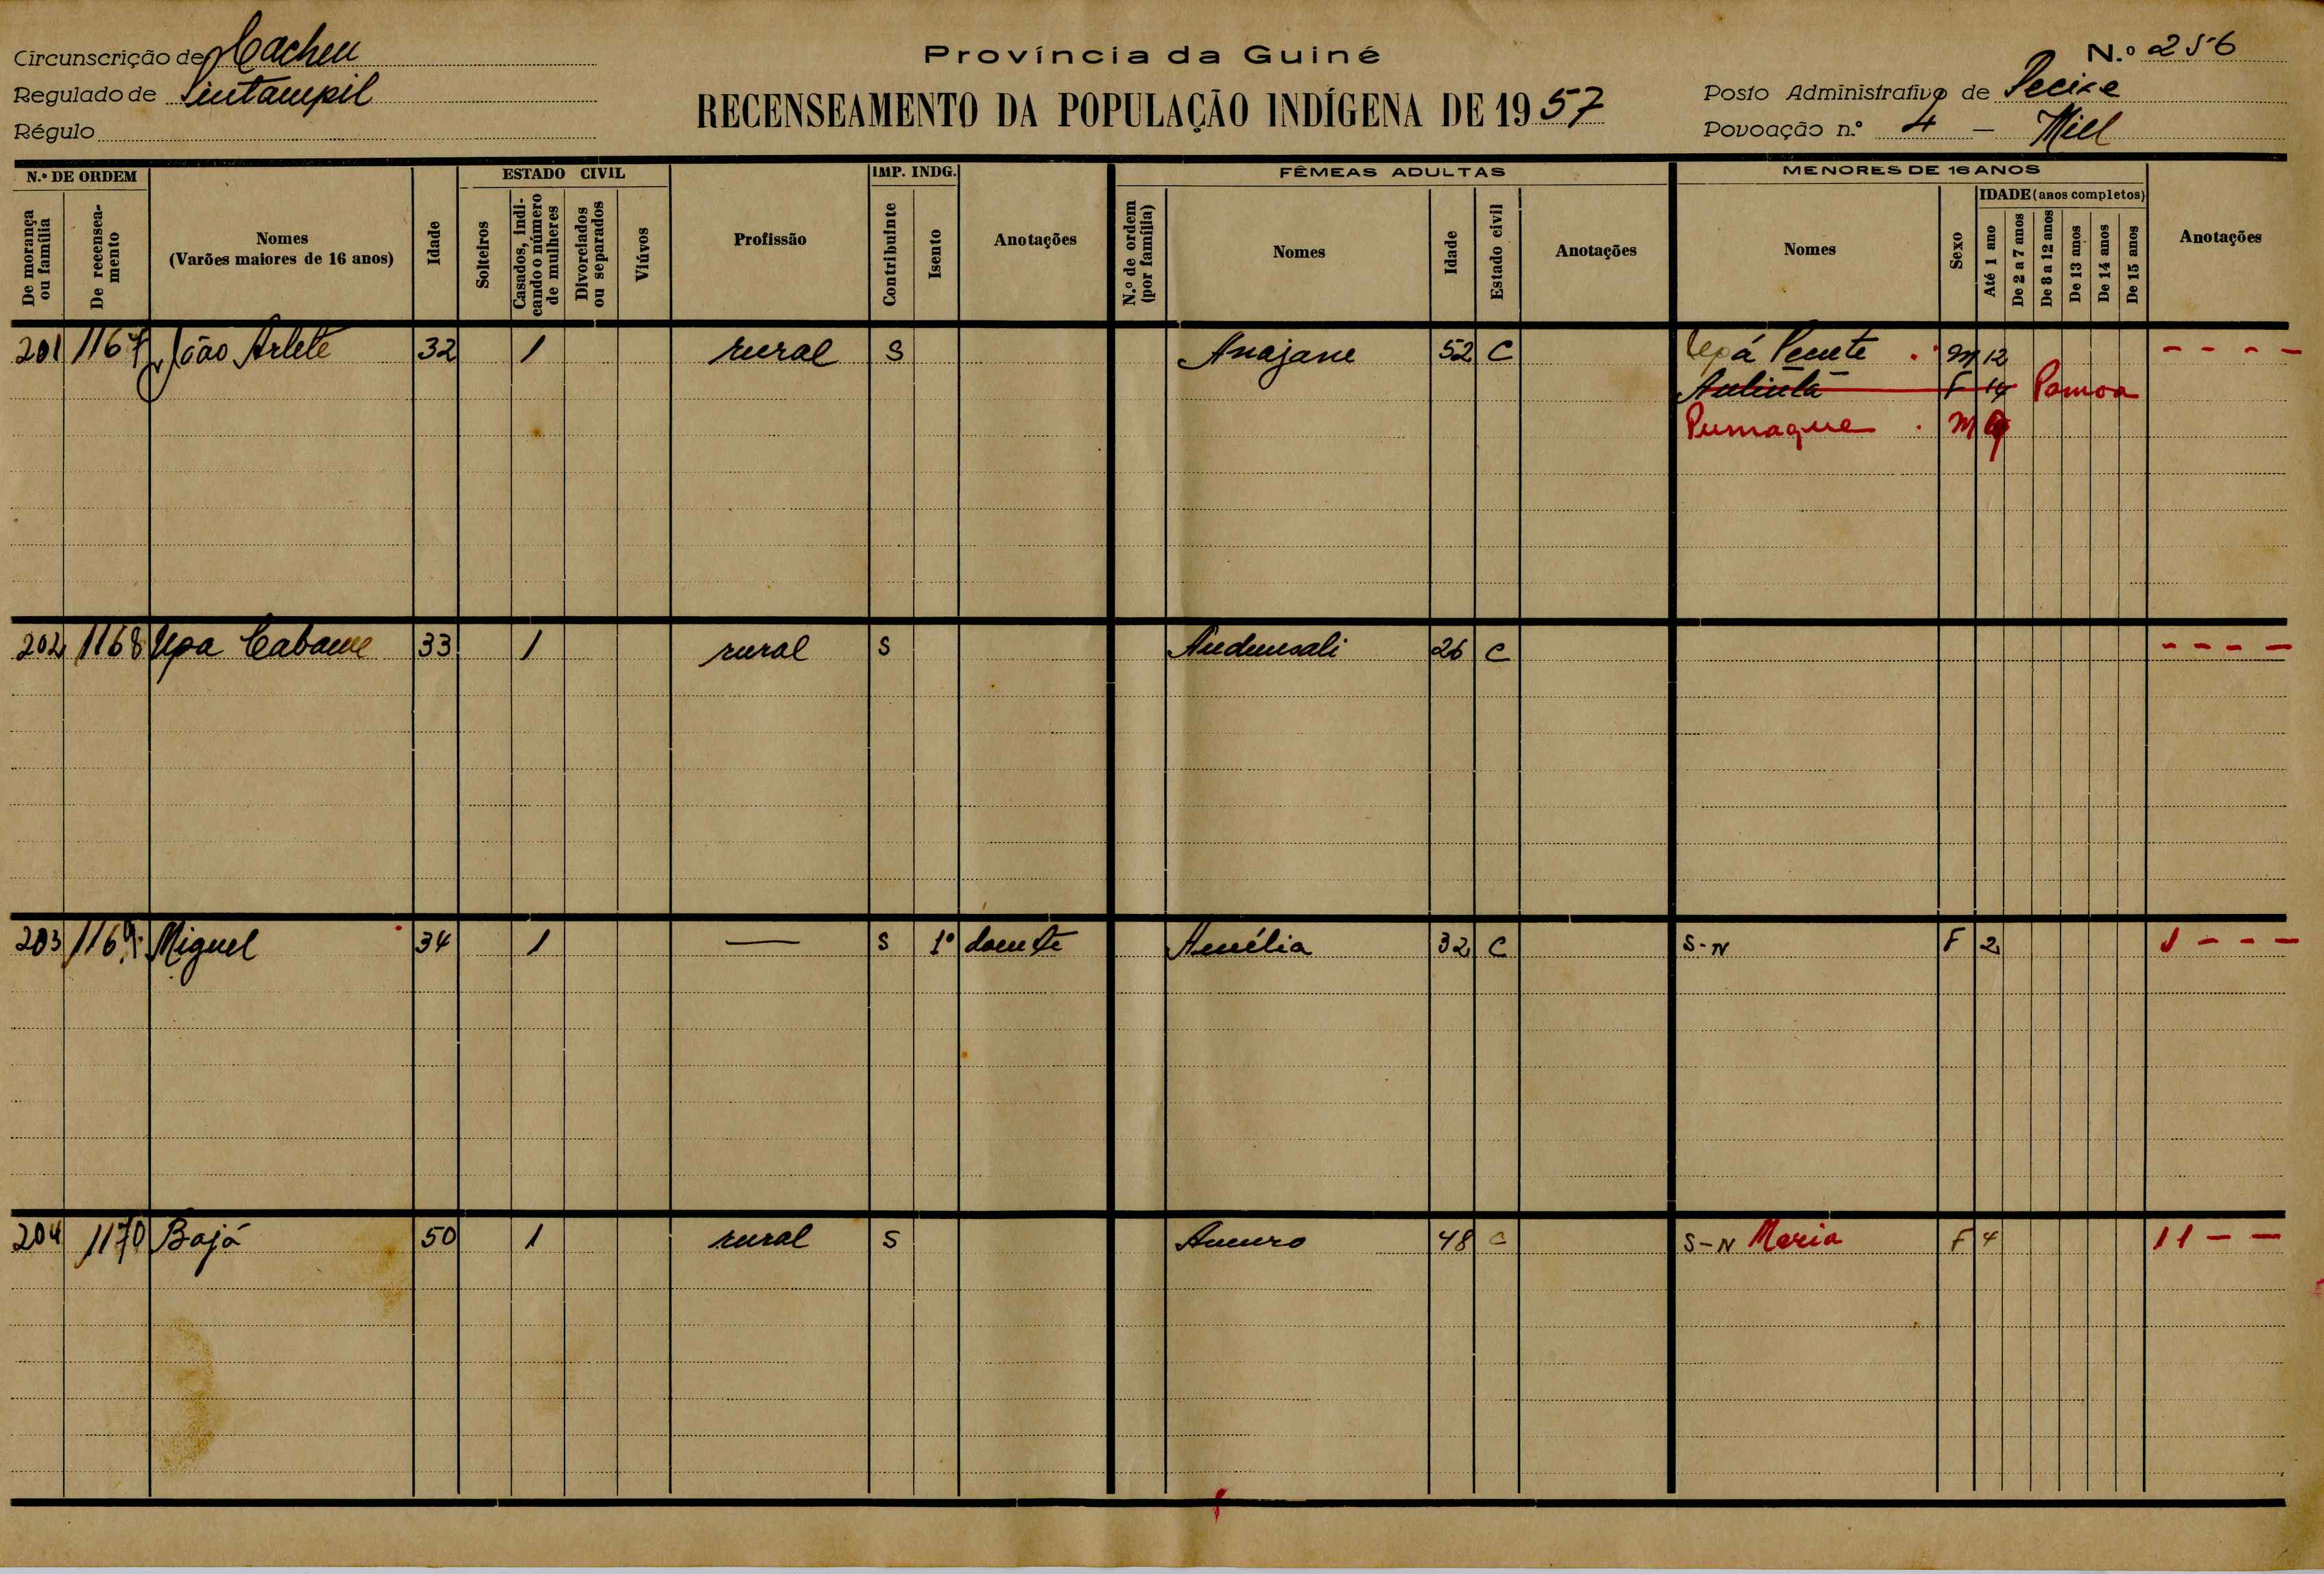 Província da Guiné
N.º 256
Circunscrição de Cacheu
Regulado de Sintampil
Régulo
RECENSEAMENTO DA POPULAÇÃO INDÍGENA DE 1957
Posto Administrativo de Pecixe
Povoação n.º 4 — Mill
N.º DE ORDEM
De morança ou família
De recenseamento
Nomes
(Varões maiores de 16 anos)
Idade
ESTADO CIVIL
Solteiros
Casados, indicando o número de mulheres
Divorciados ou separados
Viúvos
Profissão
IMP. INDG.
Contribuinte
Isento
Anotações
FÊMEAS ADULTAS
N.º de ordem (por família)
Nomes
Idade
Estado civil
Anotações
MENORES DE 16 ANOS
Nomes
Sexo
IDADE (anos completos)
Até 1 ano
De 2 a 7 anos
De 8 a 12 anos
De 13 anos
De 14 anos
De 15 anos
Anotações
201 1167 João Arlete 32 1 rural S Anajane 52 C Pecute M 12 - - - -
F 14 Pamoa
Pumaque M 9
202 1168 Upa Cabame 33 1 rural S 26 C - - - -
203 1169 Miguel 34 1 — S 1º doente Amélia 32 C S-N F 2 1 - - -
204 1170 Bajá 50 1 rural S 48 C S-N Maria F 4 1 1 - -